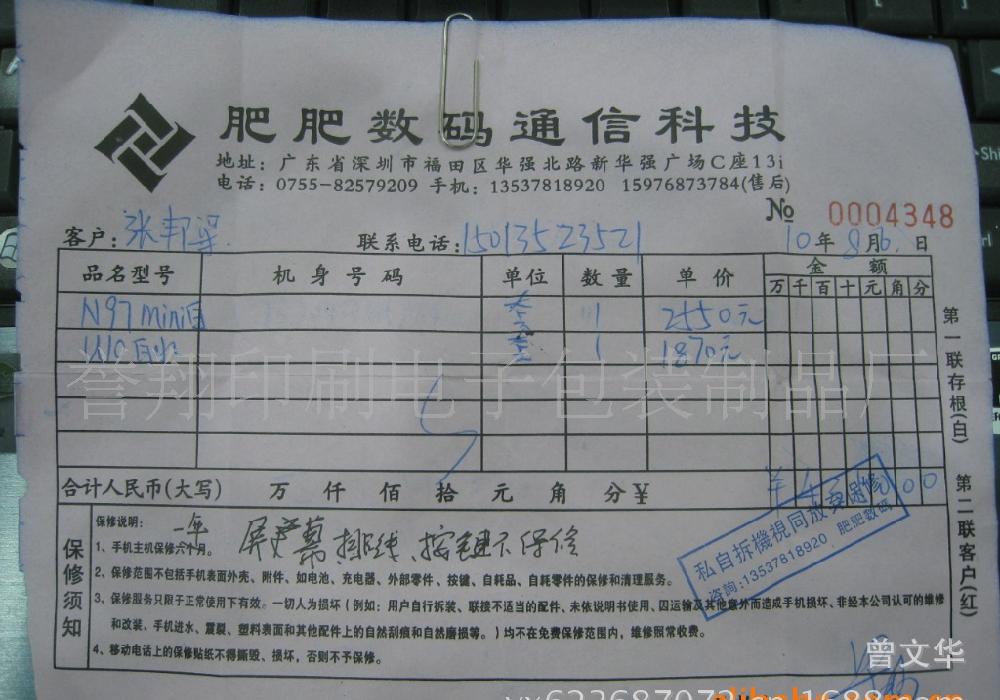 肥肥数码通信科技
地址：广东省深圳市福田区华强北路新华强广场C座13i
电话：0755-82579209 手机：13537818920 15976873784(售后)
No 0004348
客户：张邦 联系电话：15013523521 10年8月6日
品名型号 机身号码 单位 数量 单价 金额
万 千 百 十 元 角 分
N97mini白 套 1 2550元
白 套 1 1870元
誉翔印刷电子包装制品厂
合计人民币(大写) 万 仟 佰 拾 元 角 分¥
第一联存根(白) 第二联客户(红)
保修须知
保修说明：
一年
1、手机主机保修六个月。 屏幕,排线,按键不保修
2、保修范围不包括手机表面外壳、附件、如电池、充电器、外部零件、按键、自耗品、自耗零件的保修和清理服务。
3、保修服务只限于正常使用下有效。一切人为损坏（例如：用户自行拆装、联接不适当的配件、未依说明书使用、因运输及其他意外而造成手机损坏、非经本公司认可的维修
和改装、手机进水、震裂、塑料表面和其他配件上的自然刮痕和自然磨损等。）均不在免费保修范围内，维修照常收费。
4、移动电话上的保修贴纸不得撕毁、损坏，否则不予保修。
私自拆機視同放棄
咨詢:13537818920 肥肥數碼
曾文华